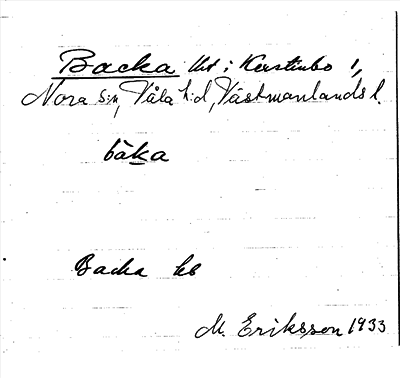 Backa lht i Kerstinbo 1,
Nora s:n, Våla h:d, Västmanlands l.
bàka
Backa kb
M. Eriksson 1933